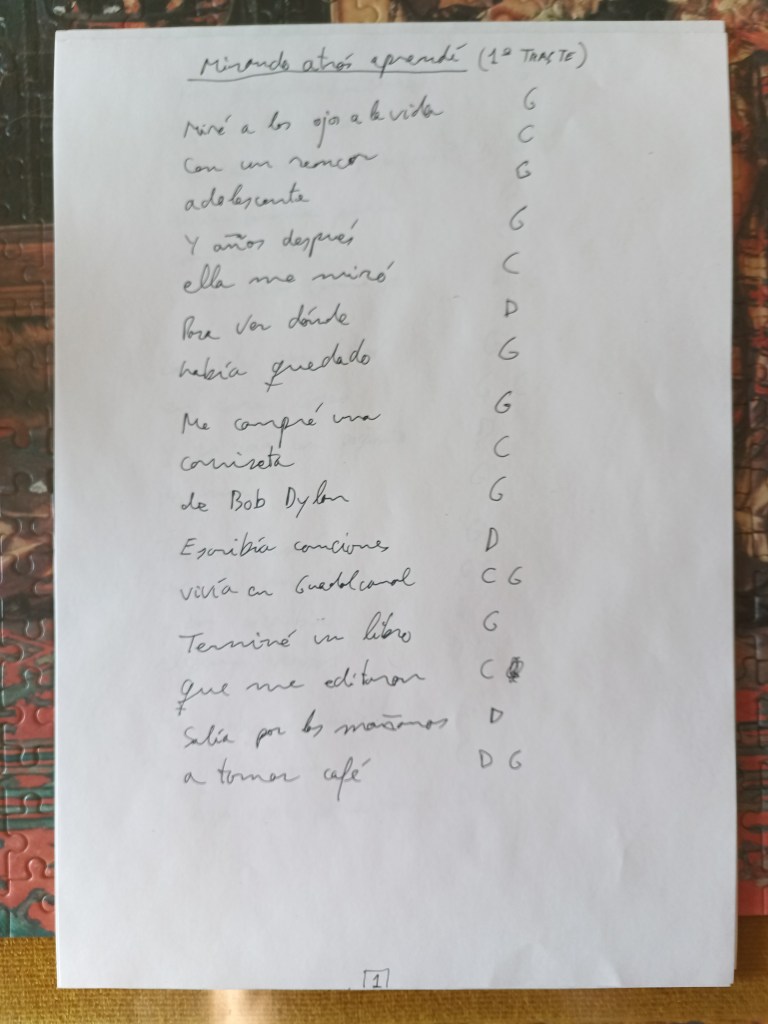 Mirando atrás aprendé (1º TRASTE)
Miré a los ojos a la vida G
Con un rencor C
adolescente G
Y años después G
ella me miró C
Para ver dónde D
había quedado G
Me compré una G
camiseta C
de Bob Dylan G
Escribía canciones D
vivía en Guadalcanal C G
Terminé un libro G
que me editaron C
Salía por las mañanas D
a tomar café D G
1